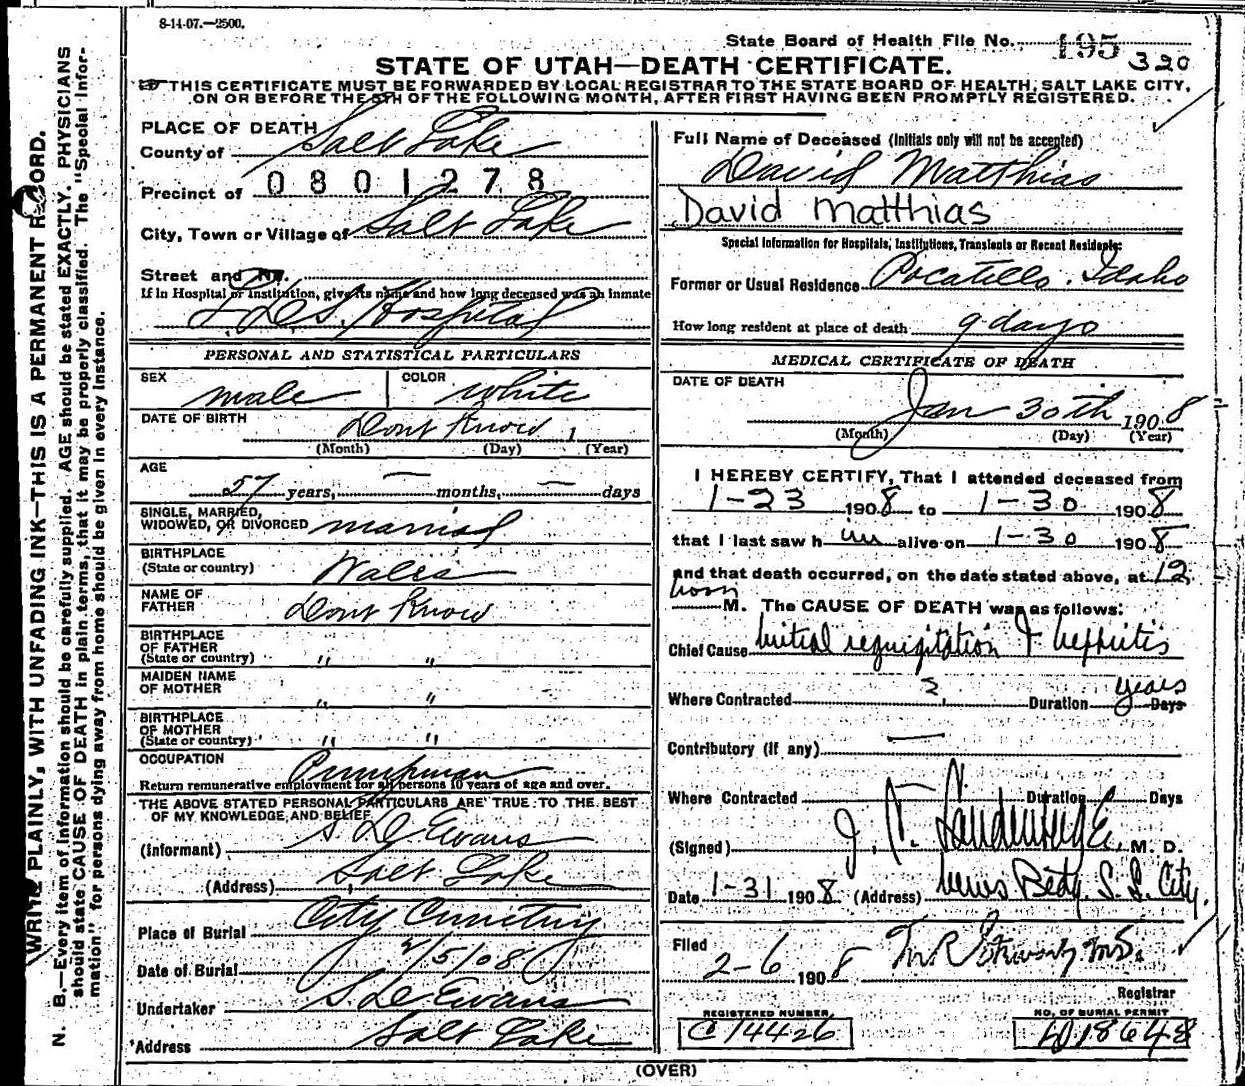 8-14-07.—2500.
State Board of Health File No. 195
320
STATE OF UTAH—DEATH CERTIFICATE.
THIS CERTIFICATE MUST BE FORWARDED BY LOCAL REGISTRAR TO THE STATE BOARD OF HEALTH, SALT LAKE CITY,
ON OR BEFORE THE 5TH OF THE FOLLOWING MONTH, AFTER FIRST HAVING BEEN PROMPTLY REGISTERED.
WRITE PLAINLY, WITH UNFADING INK—THIS IS A PERMANENT RECORD.
N. B.—Every item of information should be carefully supplied. AGE should be stated EXACTLY. PHYSICIANS
should state CAUSE OF DEATH in plain terms, that it may be properly classified. The "Special Infor-
mation" for persons dying away from home should be given in every instance.
PLACE OF DEATH
County of Salt Lake
Precinct of 0801278
City, Town or Village of Salt Lake
Street and No.
If in Hospital or Institution, give its name and how long deceased was an inmate
L.D.S. Hospital
PERSONAL AND STATISTICAL PARTICULARS
SEX male COLOR white
DATE OF BIRTH Dont Know 1
(Month) (Day) (Year)
AGE
57 years, — months, — days
SINGLE, MARRIED,
WIDOWED, OR DIVORCED married
BIRTHPLACE
(State or country) Wales
NAME OF
FATHER Dont Know
BIRTHPLACE
OF FATHER
(State or country) " "
MAIDEN NAME
OF MOTHER " "
BIRTHPLACE
OF MOTHER
(State or country) " "
OCCUPATION Pumpman
Return remunerative employment for all persons 10 years of age and over.
THE ABOVE STATED PERSONAL PARTICULARS ARE TRUE TO THE BEST
OF MY KNOWLEDGE, AND BELIEF
(Informant) S D Evans
(Address) Salt Lake
Place of Burial City Cemetery
Date of Burial 2/5/08
Undertaker S D Evans
Address Salt Lake
Full Name of Deceased (Initials only will not be accepted)
David Matthias
David Matthias
Special Information for Hospitals, Institutions, Transients or Recent Residents:
Former or Usual Residence Pocatello. Idaho
How long resident at place of death 9 days
MEDICAL CERTIFICATE OF DEATH
DATE OF DEATH
Jan 30th 1908
(Month) (Day) (Year)
I HEREBY CERTIFY, That I attended deceased from
1-23 1908 to 1-30 1908
that I last saw him alive on 1-30 1908
and that death occurred, on the date stated above, at 12
noon
M. The CAUSE OF DEATH was as follows:
Chief Cause Mitral regurgitation & Nephritis
Where Contracted Duration years Days
Contributory (if any) —
Where Contracted Duration Days
(Signed) J. M. D.
Date 1-31 1908 (Address) News Bldg. S. L. City.
Filed 2-6 1908
Registrar
REGISTERED NUMBER
C 14426
NO. OF BURIAL PERMIT
D 18648
(OVER)